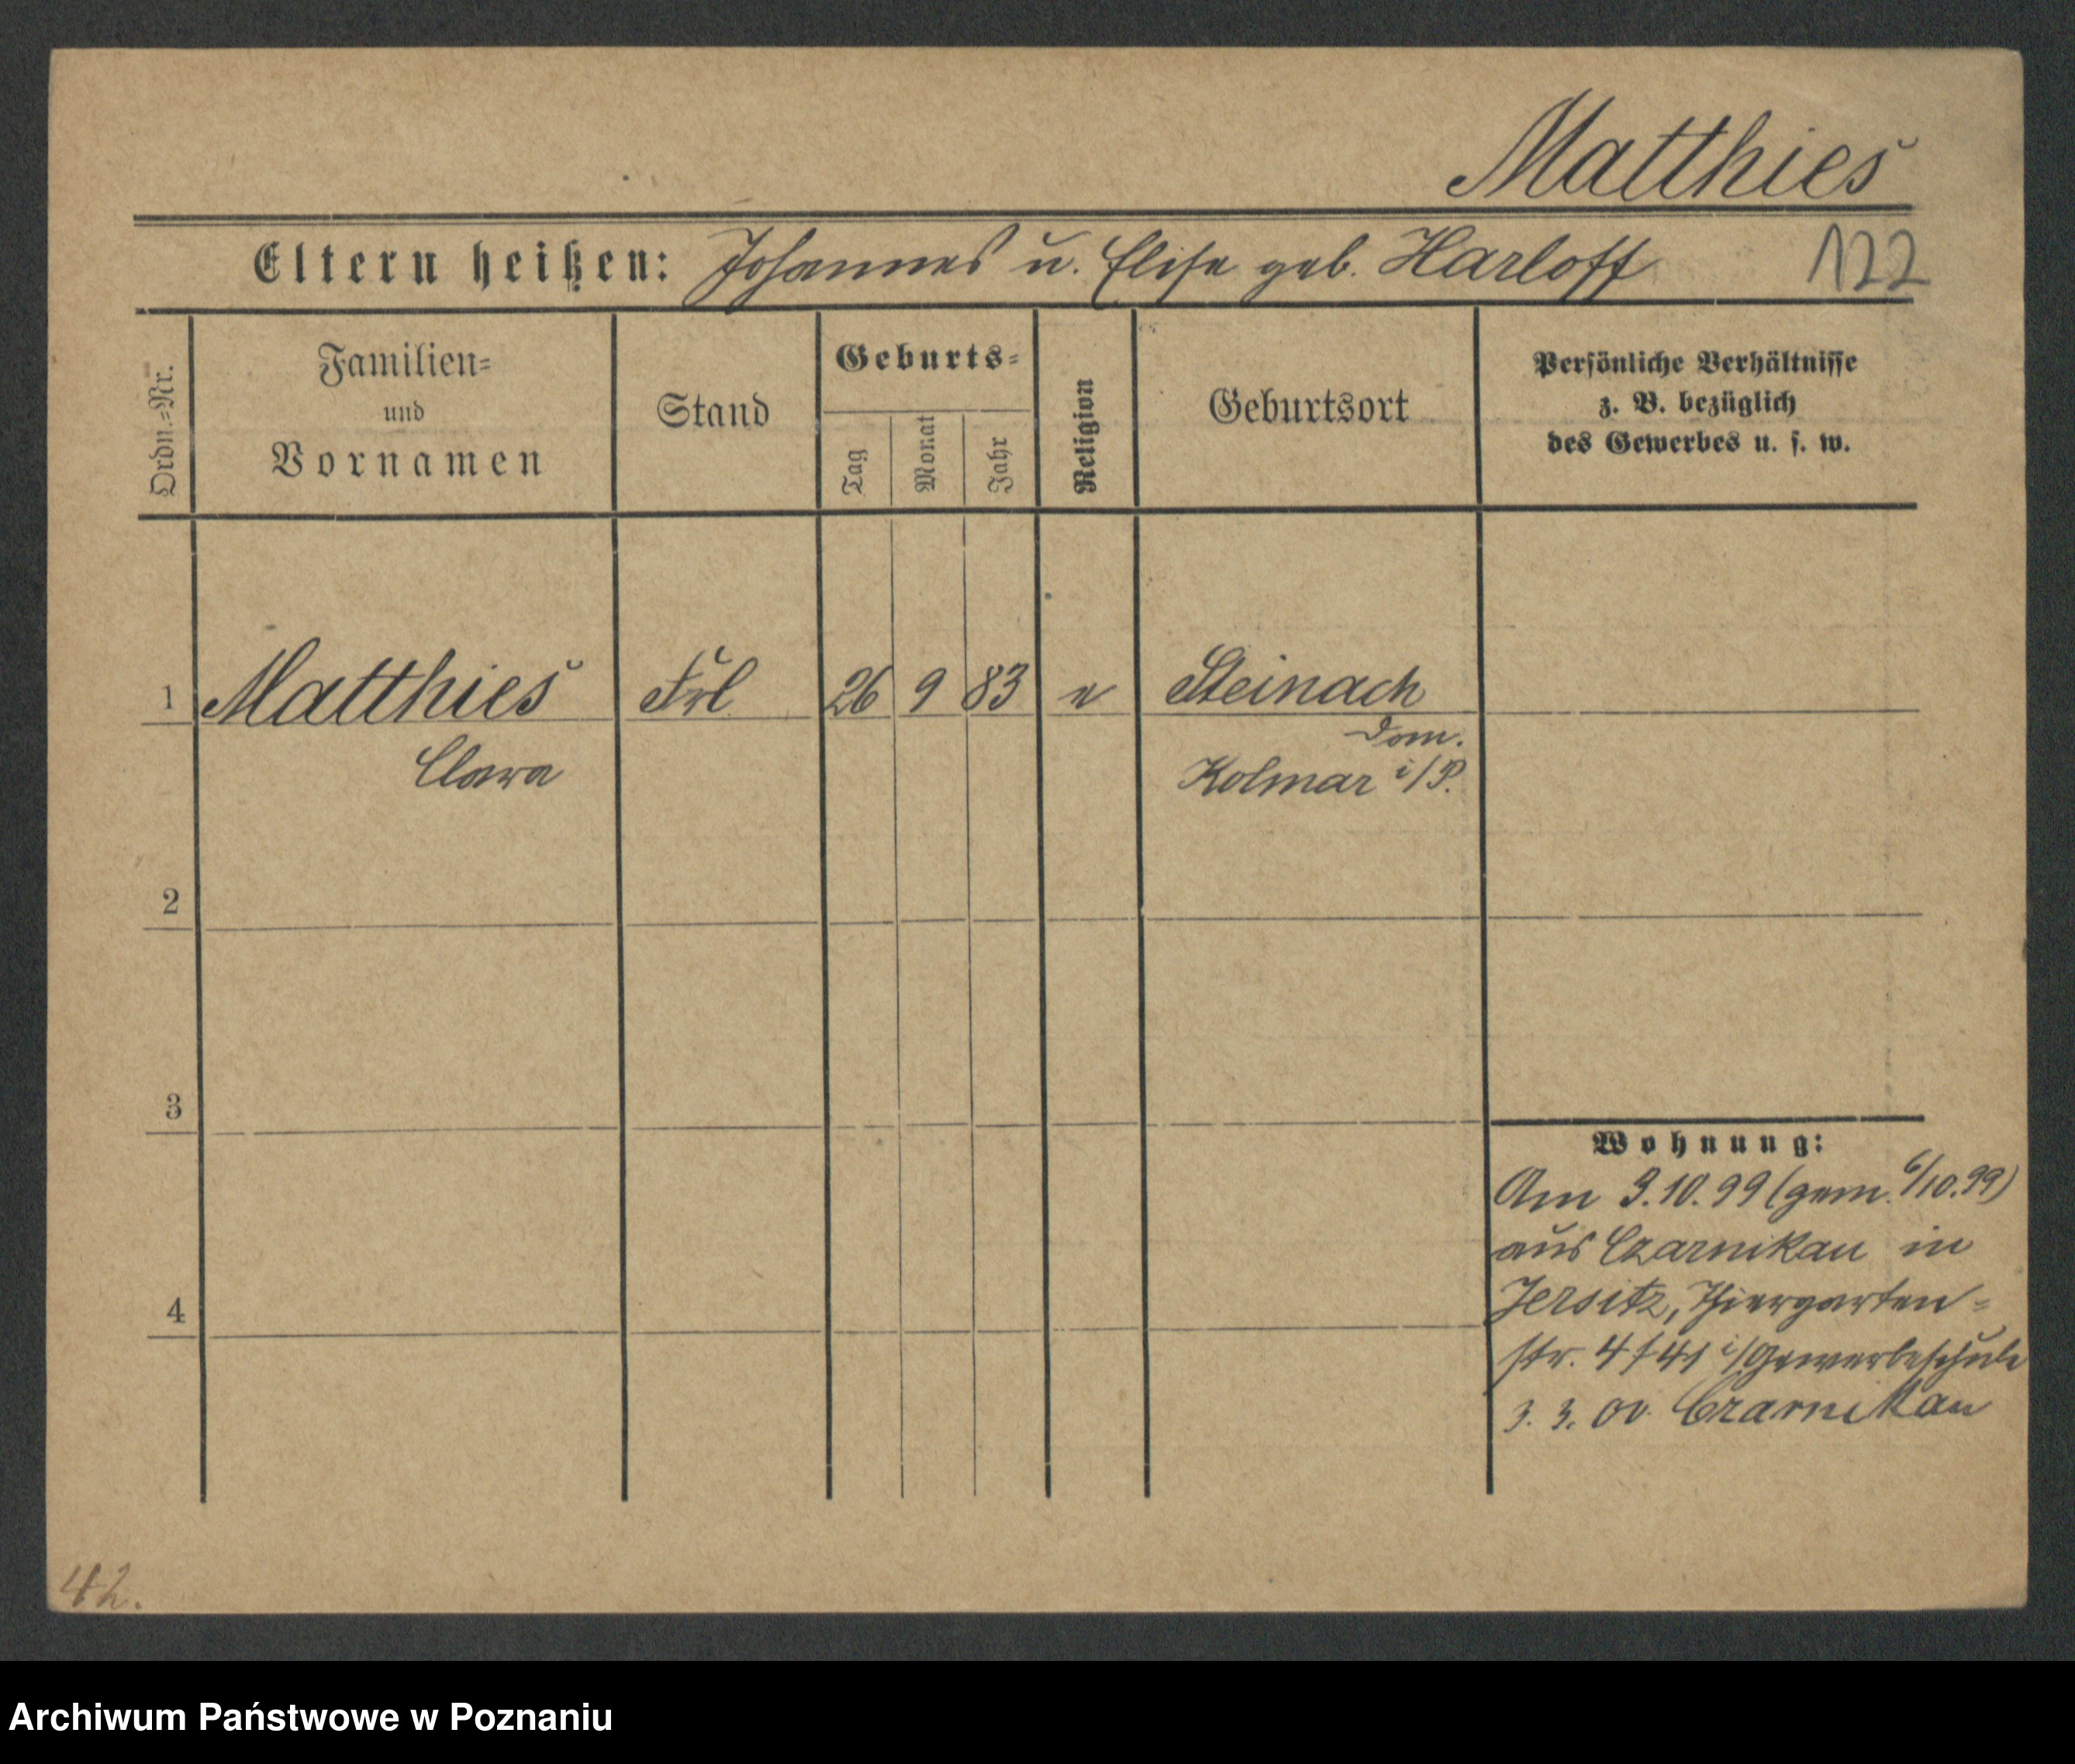 Matthies
Eltern heißen: Johannes u. Elise geb. Harloff 122
Ordn.=Nr.
Familien=
und
Vornamen
Stand
Geburts=
Tag
Monat
Jahr
Religion
Geburtsort
Persönliche Verhältnisse
z. B. bezüglich
des Gewerbes u. s. w.
1 Matthies Frl 26 9 83 e Steinach
Dom.
Clara Kolmar i/P.
2
3
Wohnung:
Am 3.10.99 (gem. 6/10.99)
aus Czarnikau in
4 Jersitz, Thiergarten=
str. 4 / 41 i/Gewerbeschule
3. 3. 00 Czarnikau
42.
Archiwum Państwowe w Poznaniu